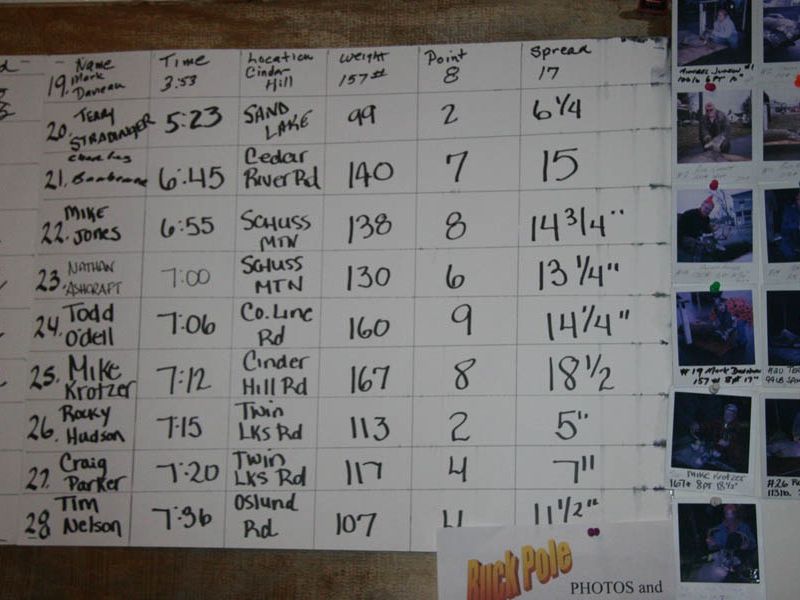 Name Time Location Weight Point Spread
19. Mark 3:53 Cinder Hill 157# 8 17
20. TERRY 5:23 SAND LAKE 99 2 6 1/4
21. 6:45 Cedar River Rd 140 7 15
22. MIKE Jones 6:55 SCHUSS MTN 138 8 14 3/4"
23 NATHAN ASHCRAFT 7:00 SCHUSS MTN 130 6 13 1/4"
24. Todd O'dell 7:06 Co. Line Rd 160 9 14 1/4"
25. Mike Krotzer 7:12 Cinder Hill Rd 167 8 18 1/2
26. Rocky Hudson 7:15 Twin LKS Rd 113 2 5"
27. Craig Parker 7:20 Twin LKS Rd 117 4 7"
28 Tim Nelson 7:36 Oslund Rd 107 4 11 1/2"
Buck Pole
PHOTOS and
#19 Mark
157# 8pt 17"
MIKE Krotzer
167# 8PT 18 1/2"
#26
113lb.